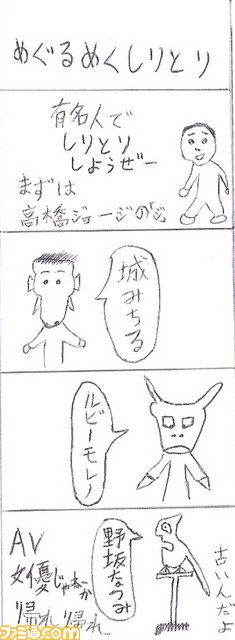 めぐるめくしりとり
有名人で
しりとり
しようぜー
まずは
高橋ジョージの「ジ」
城みちる
ルビーモレノ
野坂なつみ
古いんだよ
AV
女優じゃねーか
帰れ 帰れ
ファミ通.com